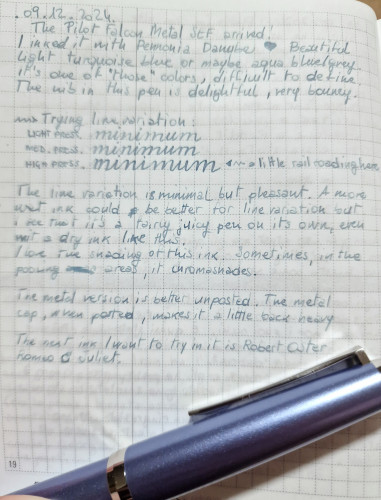 .09.12.2024.
The Pilot Falcon Metal SEF arrived!
I inked it with Pennonia Danube! ♥ Beautiful
light turquoise blue or maybe aqua blue/grey.
it's one of "those" colors, difficult to define.
The nib in this pen is delightful, very bouncy.
Trying line variation:
LIGHT PRESS. minimum
MED. PRESS. minimum
HIGH PRESS. minimum a little railroading here
The line variation is minimal but pleasant. A more
wet ink could be better for line variation but
I see that it's a fairly juicy pen on its own, even
with a dry ink like this.
I love the shading of this ink. Sometimes, in the
pooling areas, it chromashades.
The metal version is better unposted. The metal
cap, when posted, makes it a little back heavy
The next ink I want to try in it is Robert Oster
Romeo & Juliet.
19